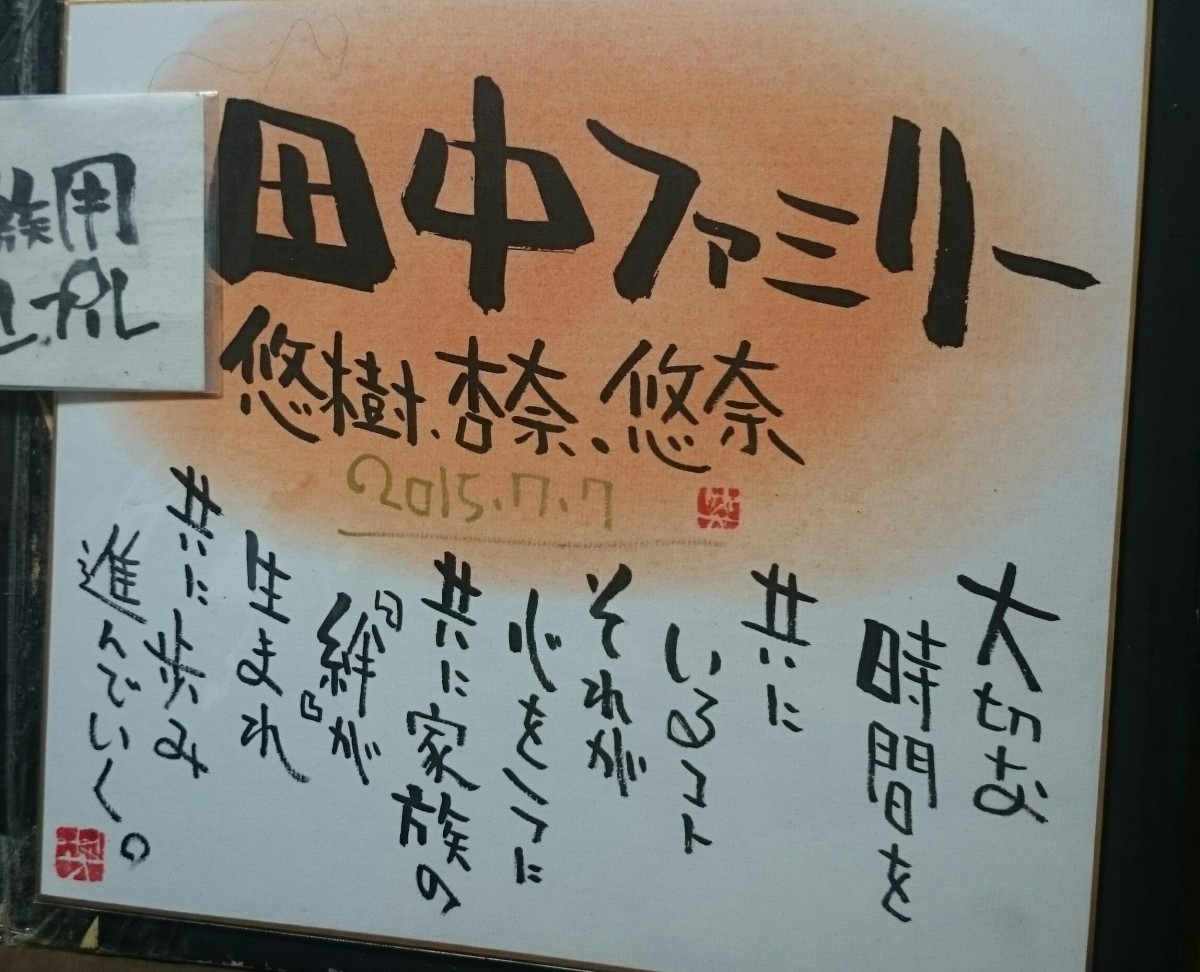 田中ファミリー
悠樹、杏奈、悠奈
2015.7.7
大切な
時間を
共に
いるコト
それが
心を一つに
共に家族の
「絆」が
生まれ
共に歩み
進んでいく。
用